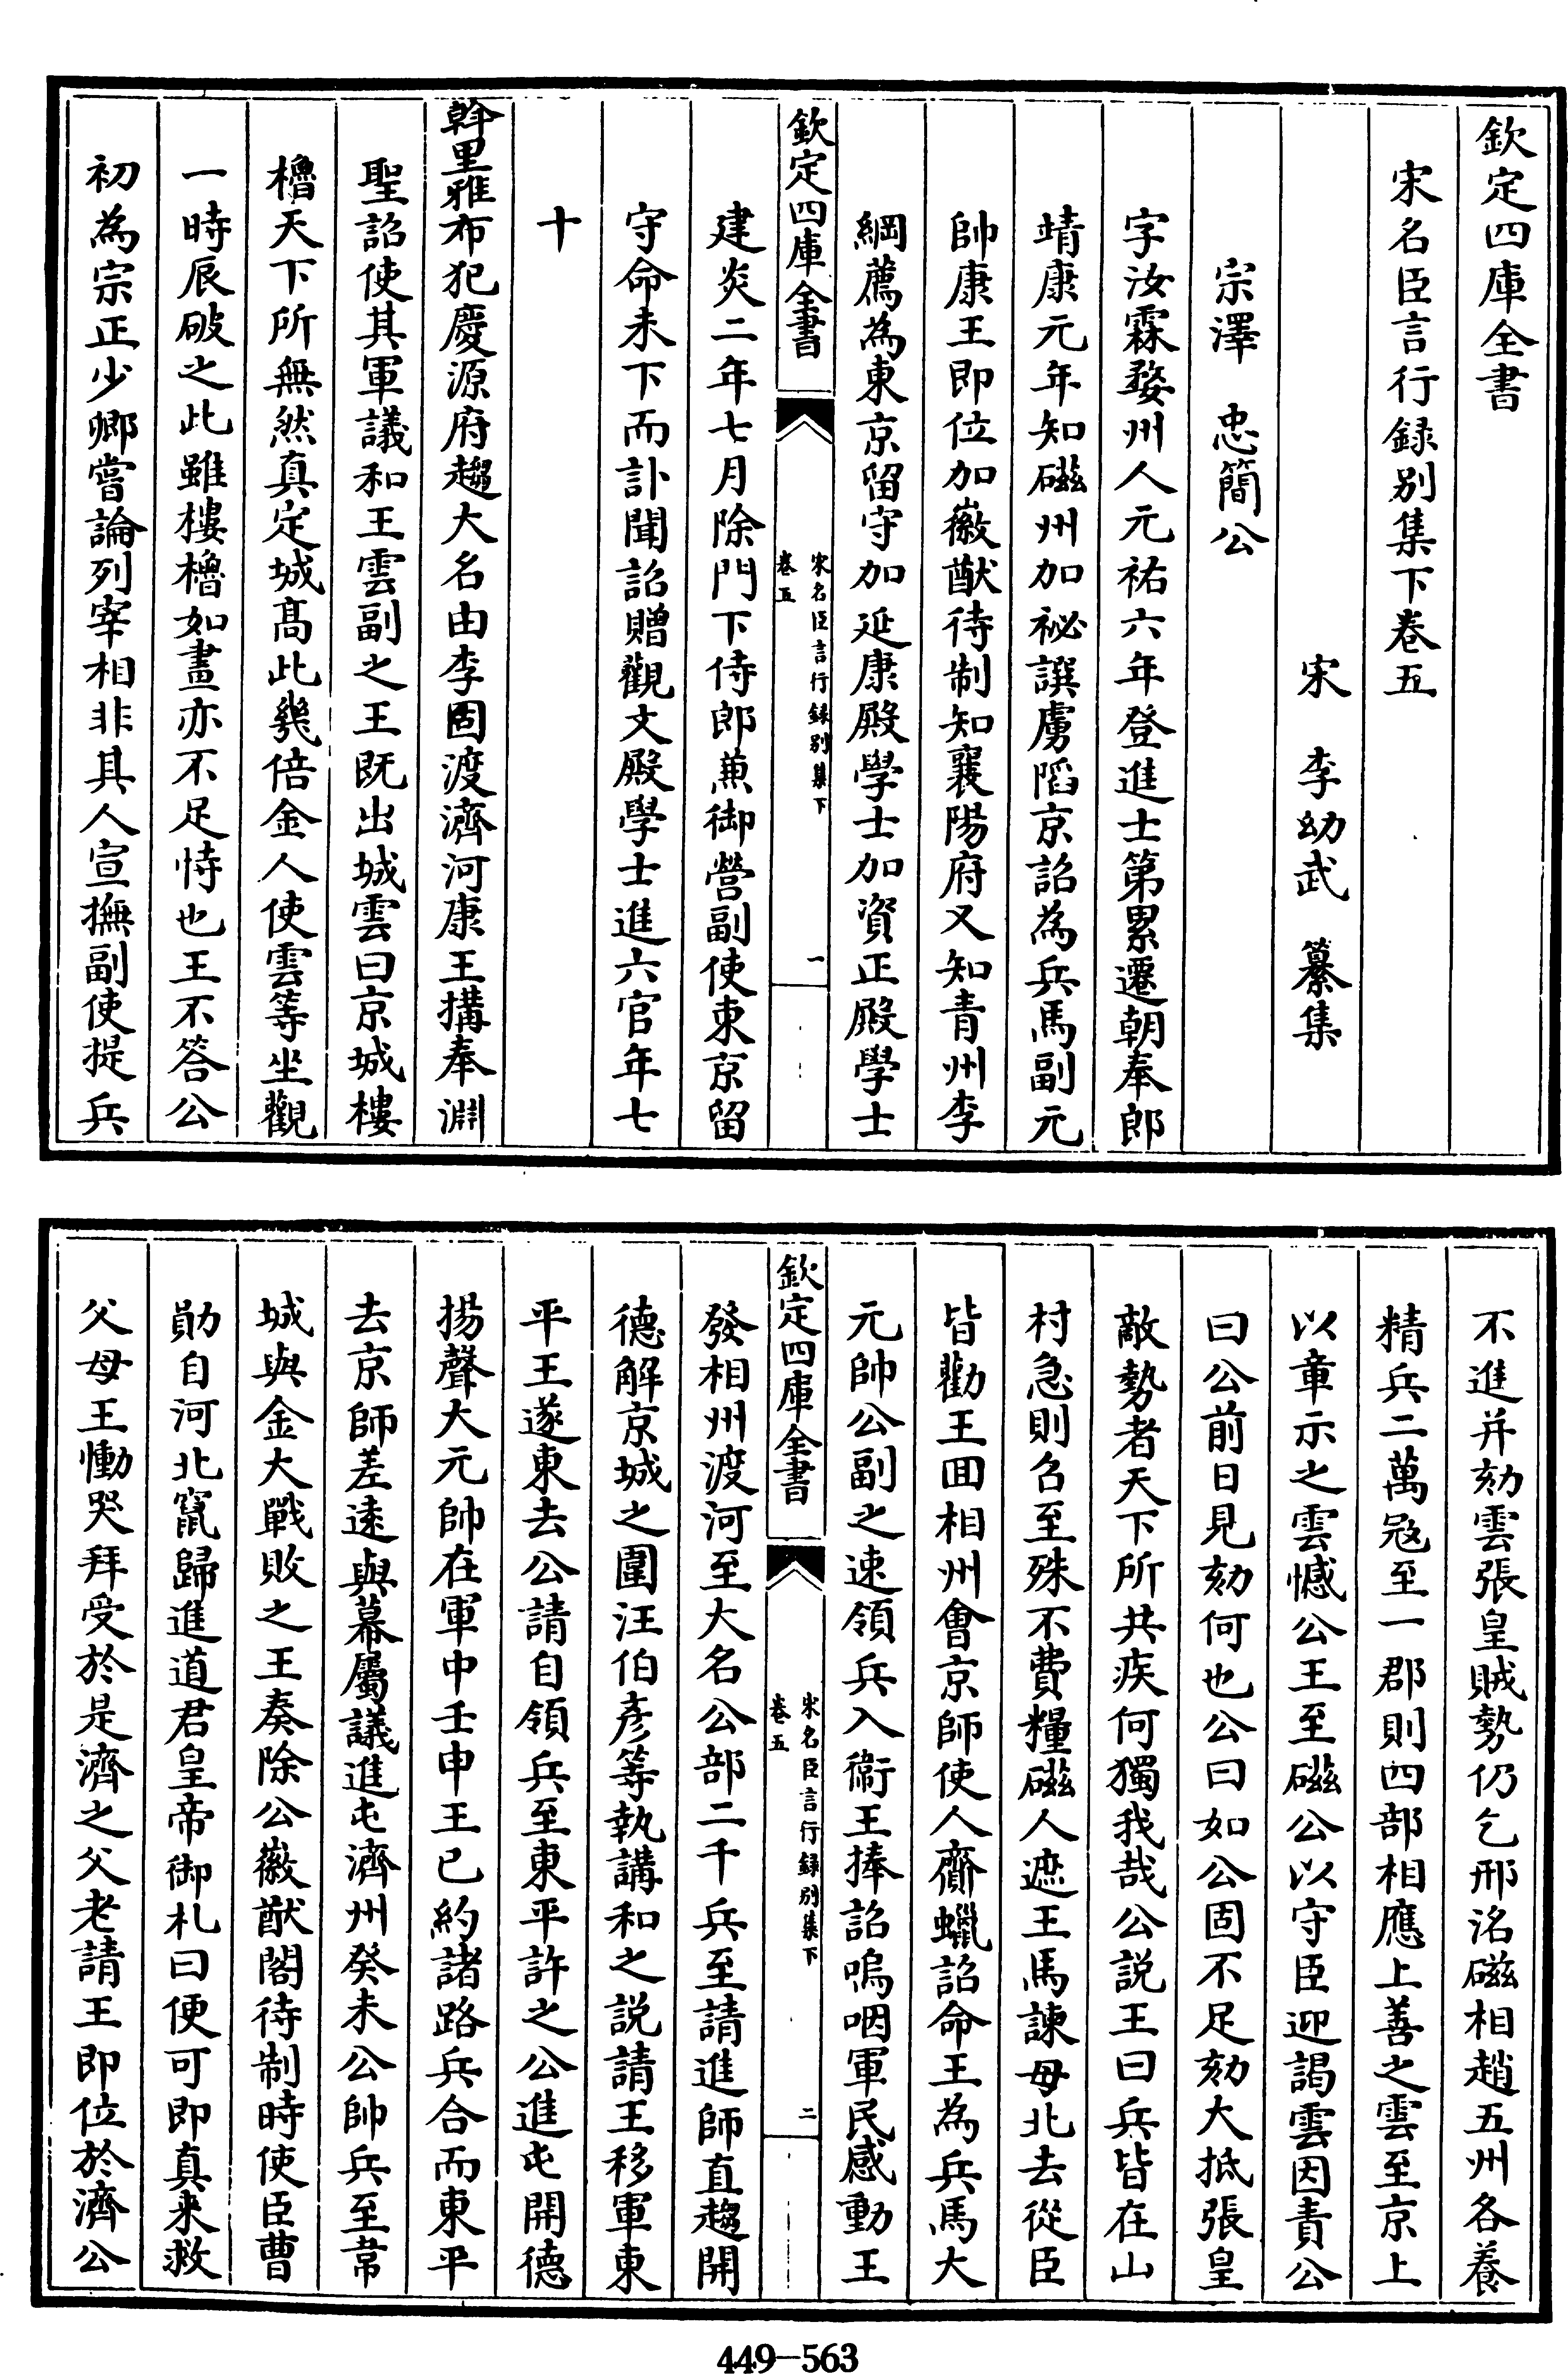 欽定四庫全書
宋名臣言行録别集下卷五
宋　李幼武　纂集
宗澤　忠簡公
字汝霖婺州人元祐六年登進士第累遷朝奉郎
靖康元年知磁州加祕譔虜陷京詔為兵馬副元
帥康王即位加徽猷待制知襄陽府又知青州李
綱薦為東京留守加延康殿學士加資正殿學士
欽定四庫全書
宋名臣言行録别集下
卷五
一
建炎二年七月除門下侍郎兼御營副使東京留
守命未下而訃聞詔贈觀文殿學士進六官年七
十
斡里雅布犯慶源府趨大名由李固渡濟河康王構奉淵
聖詔使其軍議和王雲副之王既出城雲曰京城樓
櫓天下所無然真定城髙此幾倍金人使雲等坐觀
一時辰破之此雖樓櫓如畫亦不足恃也王不答公
初為宗正少卿嘗論列宰相非其人宣撫副使提兵
不進并劾雲張皇賊勢仍乞邢洺磁相趙五州各養
精兵二萬冦至一郡則四部相應上善之雲至京上
以章示之雲憾公王至磁公以守臣迎謁雲因責公
曰公前日見劾何也公曰如公固不足劾大抵張皇
敵勢者天下所共疾何獨我哉公説王曰兵皆在山
村急則名至殊不費糧磁人遮王馬諫毋北去從臣
皆勸王回相州會京師使人齎蠟詔命王為兵馬大
元帥公副之速領兵入衞王捧詔嗚咽軍民感動王
欽定四庫全書
宋名臣言行録别集下
卷五
二
發相州渡河至大名公部二千兵至請進師直趨開
德解京城之圍汪伯彦等執講和之説請王移軍東
平王遂東去公請自領兵至東平許之公進屯開德
揚聲大元帥在軍中壬申王已約諸路兵合而東平
去京師差逺與幕屬議進屯濟州癸未公帥兵至韋
城與金大戰敗之王奏除公徽猷閣待制時使臣曹
勛自河北竄歸進道君皇帝御札曰便可即真来救
父母王慟哭拜受於是濟之父老請王即位於濟公
449—563